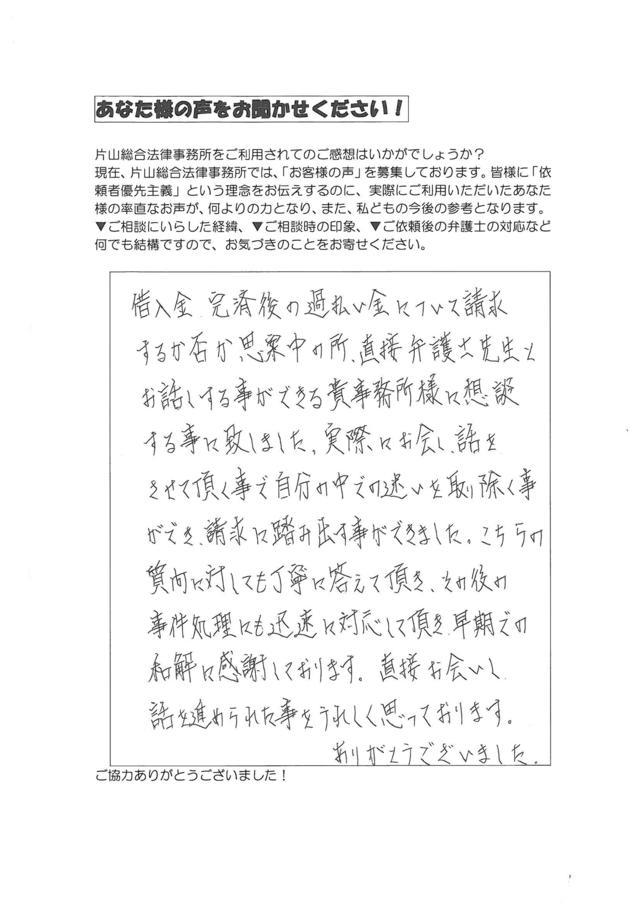 あなた様の声をお聞かせください！
片山総合法律事務所をご利用されてのご感想はいかがでしょうか？
現在、片山総合法律事務所では、「お客様の声」を募集しております。皆様に「依
頼者優先主義」という理念をお伝えするのに、実際にご利用いただいたあなた
様の率直なお声が、何よりの力となり、また、私どもの今後の参考となります。
▼ご相談にいらした経緯、▼ご相談時の印象、▼ご依頼後の弁護士の対応など
何でも結構ですので、お気づきのことをお寄せください。
借入金 完済後の過払い金について請求
するか否か、思案中の所、直接弁護士先生と
お話しする事ができる貴事務所様に想談
する事に致しました。実際にお会いし、話を
させて頂く事で自分の中での迷いを取り除く事
ができ、請求に踏み出す事ができました。こちらの
質問に対しても丁寧に答えて頂き、その後の
事件処理にも迅速に対応して頂き、早期での
和解に感謝しております。直接お会いし
話を進められた事をうれしく思っております。
ありがとうございました。
ご協力ありがとうございました！